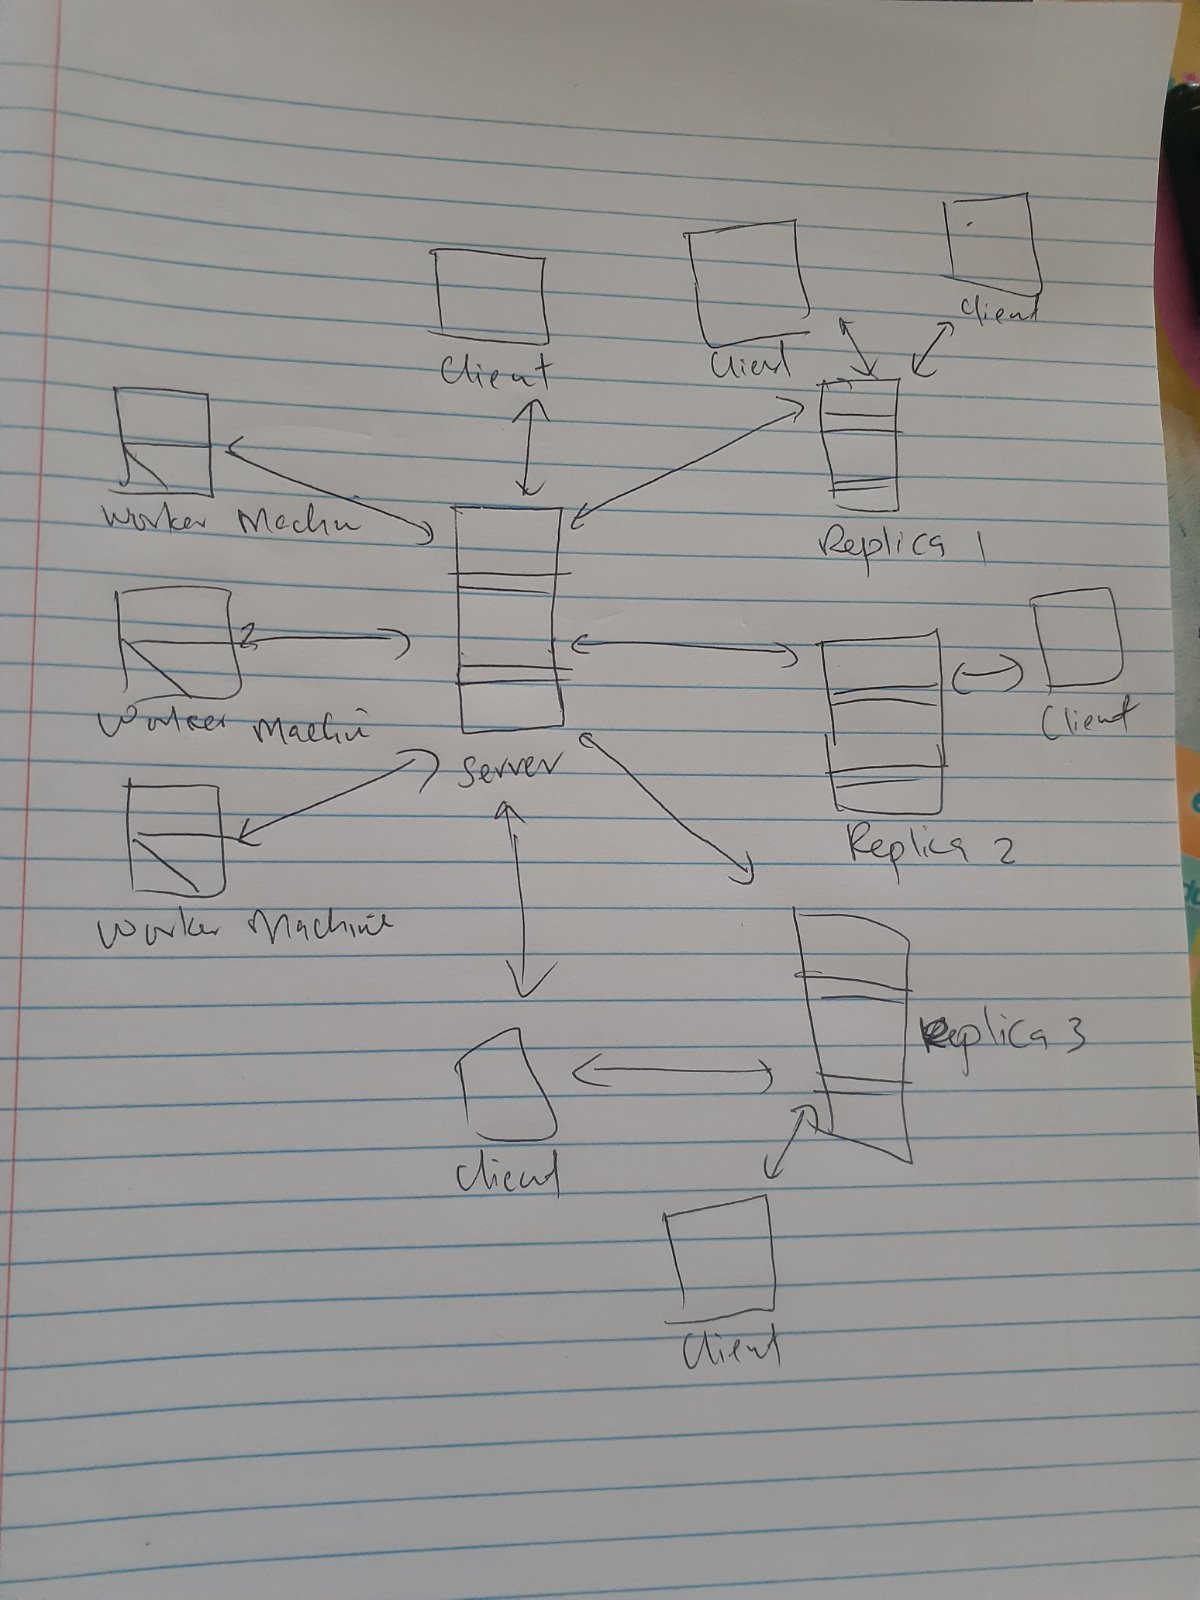 Client
Client
Client
Worker Machin
Replica 1
Worker Machin
Client
Server
Replica 2
Worker Machine
Replica 3
Client
Client